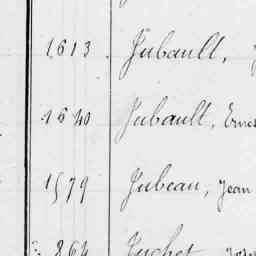 1613. Jubault,
1640 Jubault, Ernes
1579 Jubeau, Jean
864 Juchet